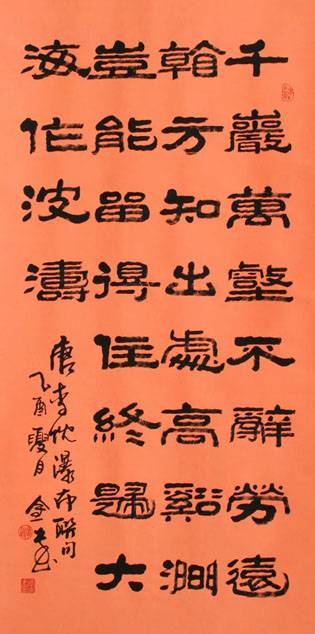 千巖萬壑不辭勞遠
看方知出處高谿澗
豈能留得住終歸大
海作波濤
唐李忱瀑布聯句
乙酉夏月金